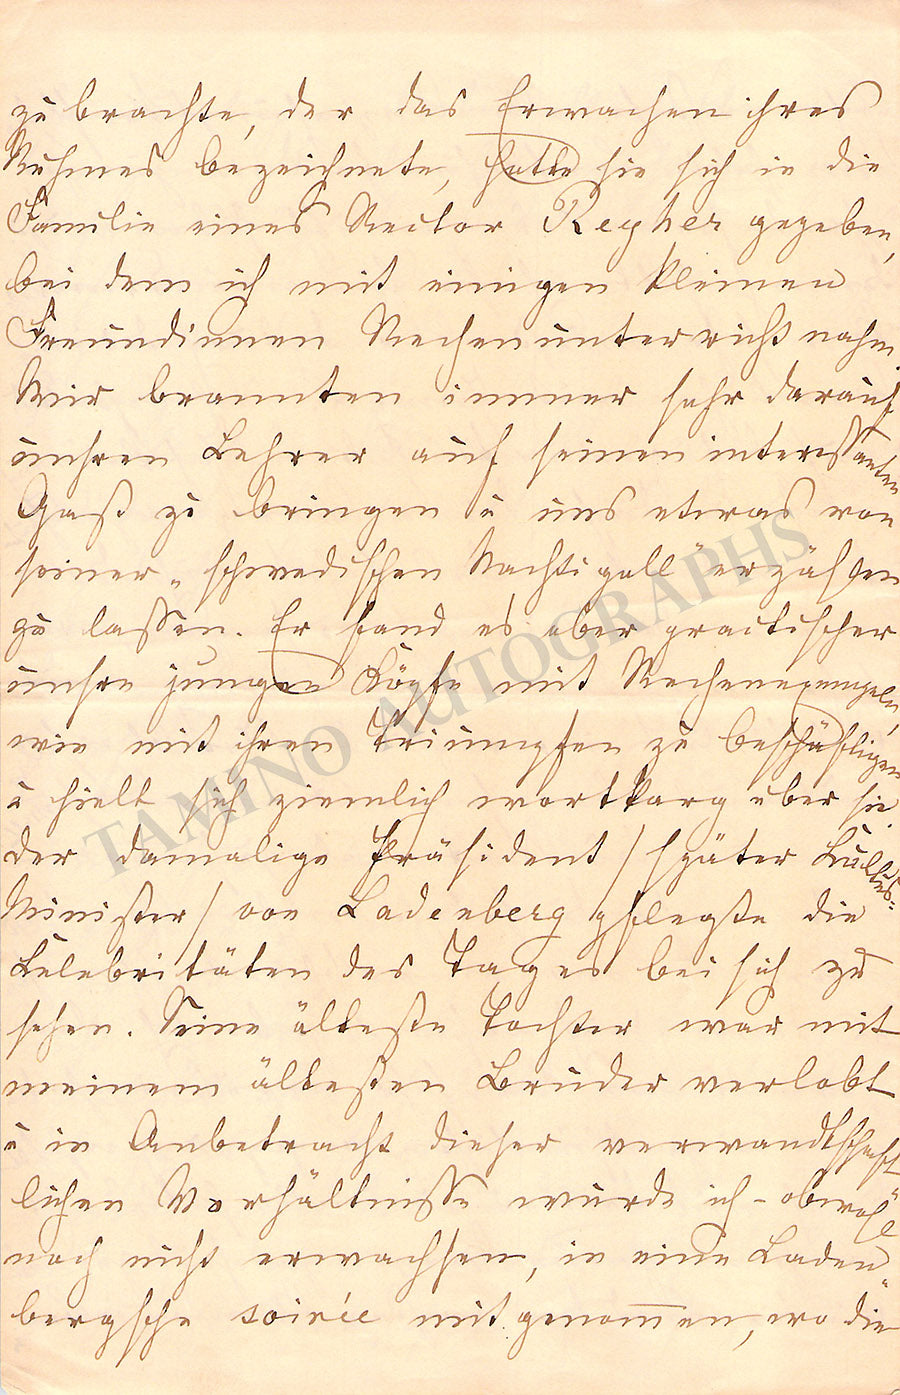 zubrachte, der das Erwachen ihres
Ruhmes bezeichnete, hatte sie sich in die
Familie eines Rector Reyher gegeben,
bei dem ich mit einigen kleinen
Freundinnen Rechenunterricht nahm.
Wir brannten immer sehr darauf,
unsren Lehrer auf seinen interessanten
Gast zu bringen u uns etwas von
seiner „schwedischen Nachtigall“ erzählen
zu lassen. Er fand es aber practischer
unsre jungen Köpfe mit Rechenexempeln,
wie mit ihren Triumpfen zu beschäftigen
u hielt sich ziemlich wortkarg über sie.
Der damalige Präsident / später Kultus-
Minister / von Ladenberg pflegte die
Celebritäten des Tages bei sich zu
sehen. Seine älteste Tochter war mit
meinem ältesten Bruder verlobt
u in Anbetracht dieser verwandtschaft
lichen Verhältnisse wurde ich – obwohl
noch nicht erwachsen, in eine Laden
bergsche soirée mitgenommen, wo die
TAMINO AUTOGRAPHS